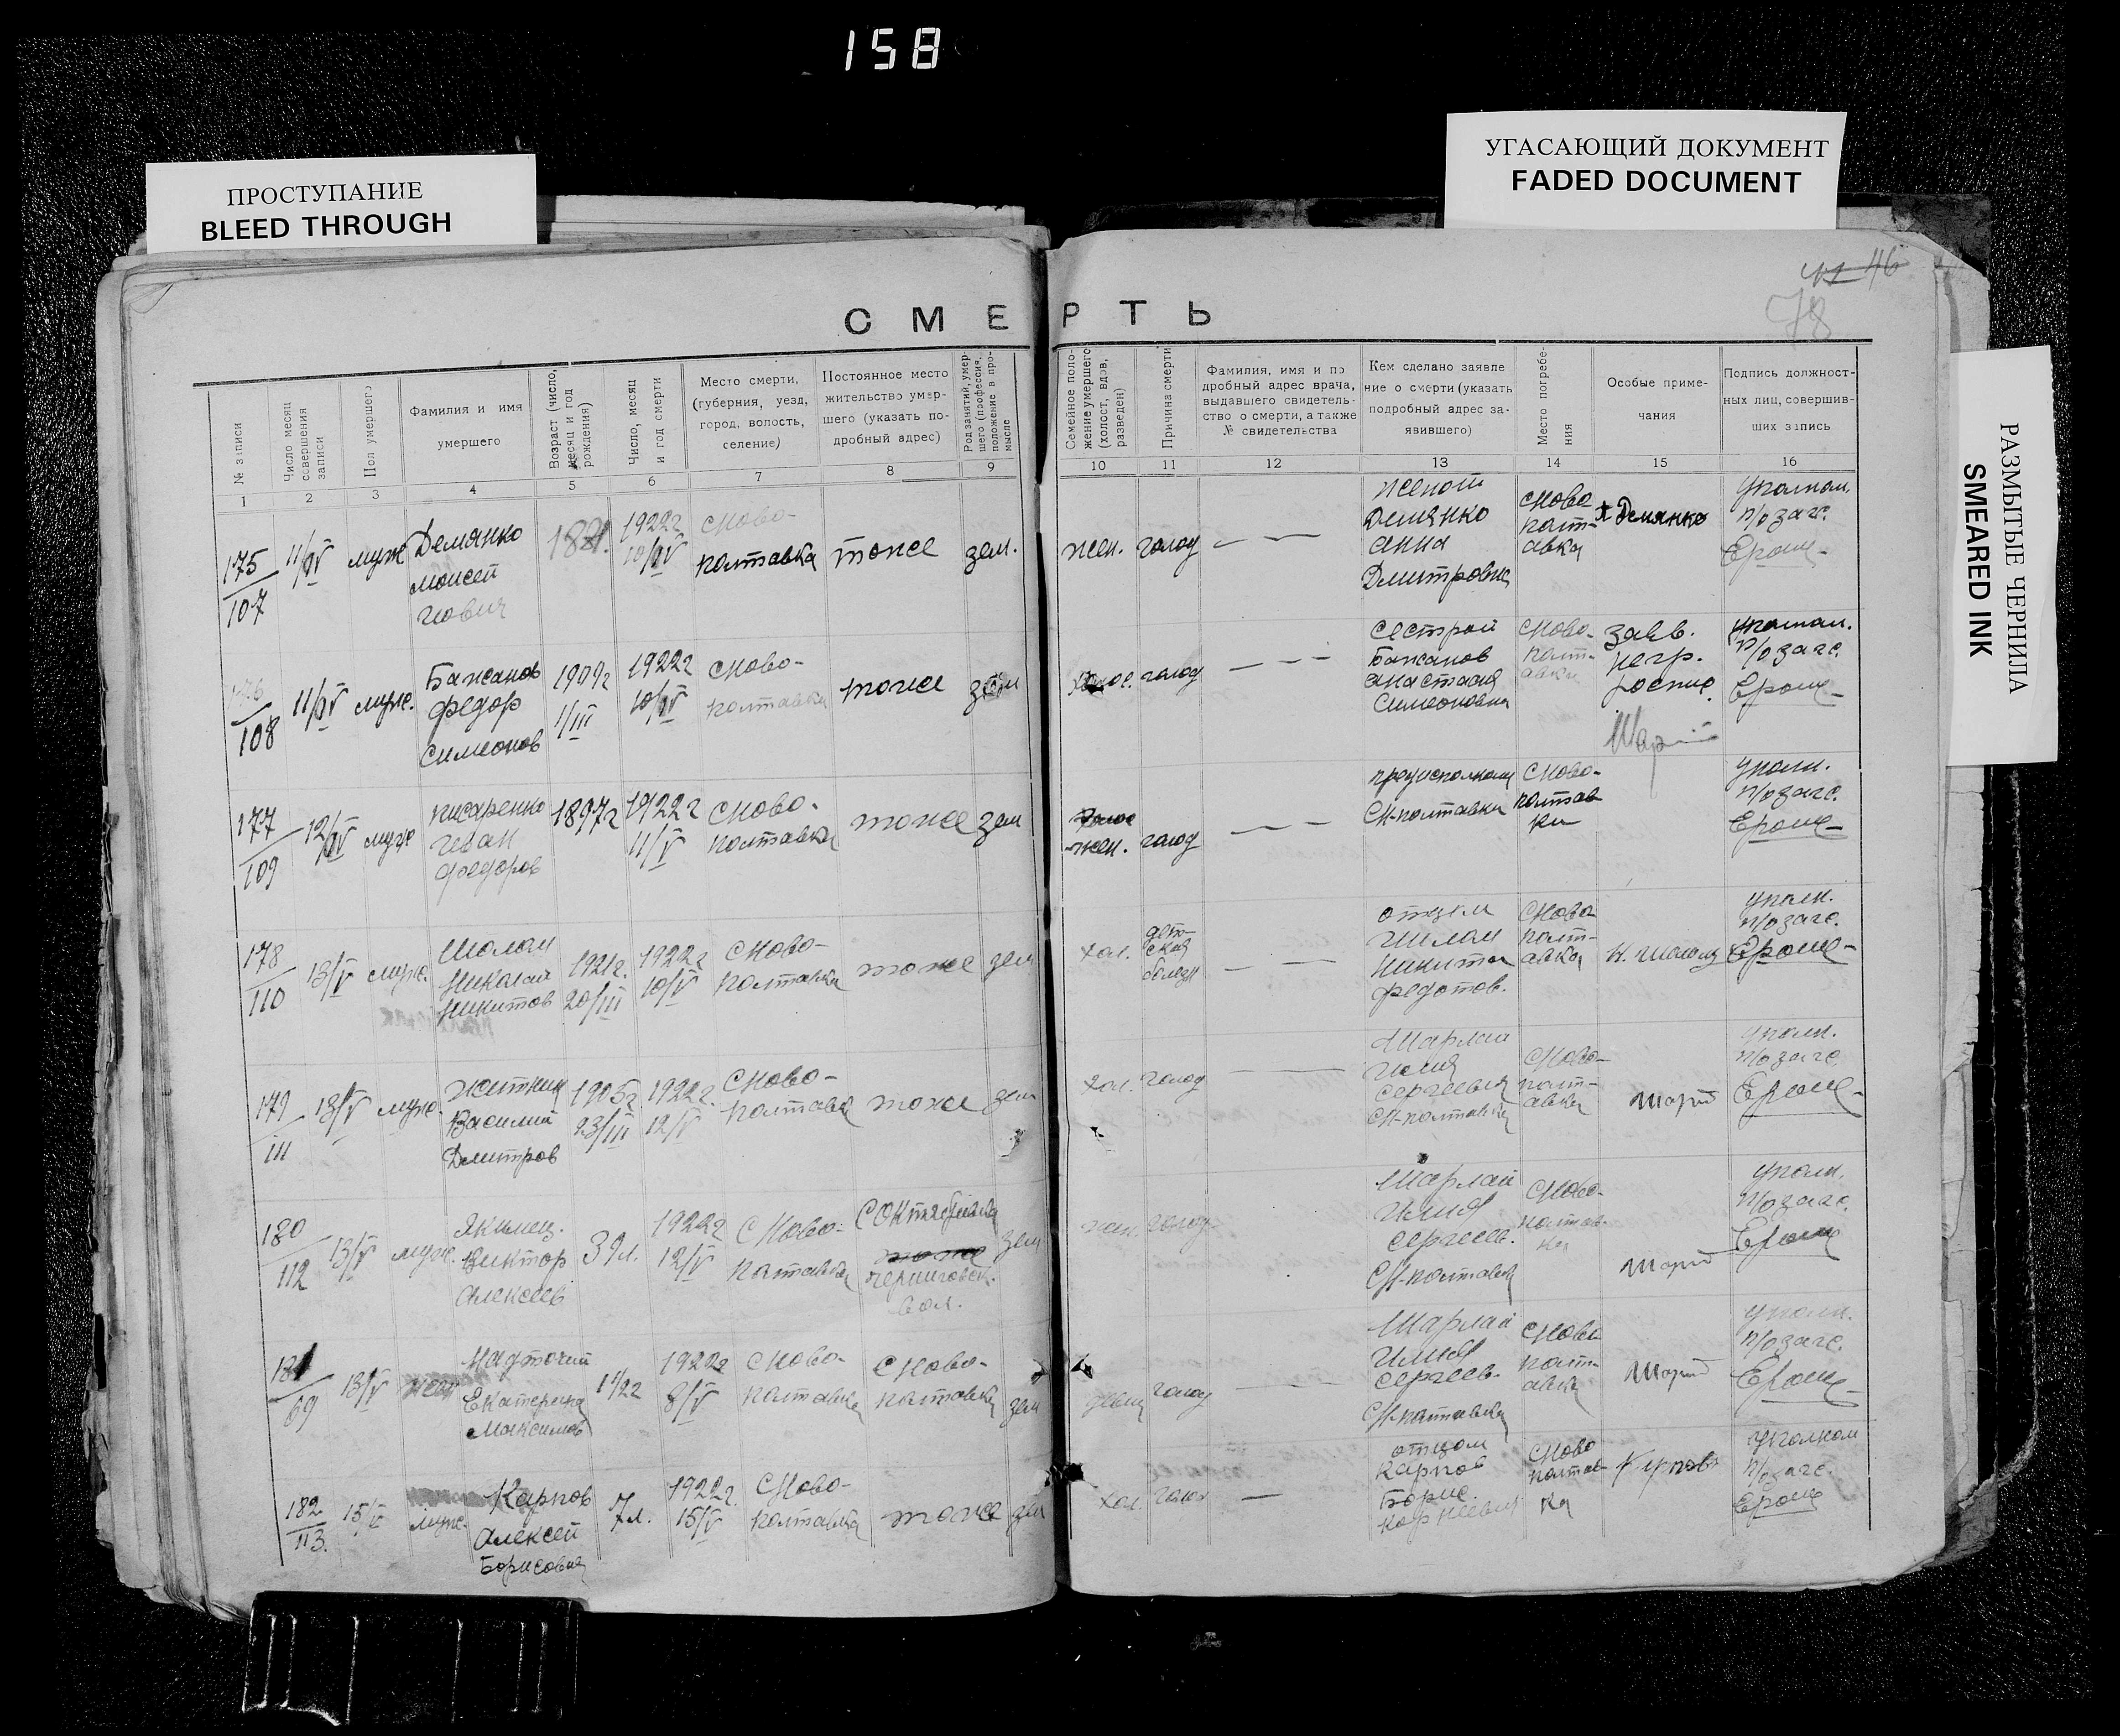 158
ПРОСТУПАНИЕ
BLEED THROUGH
УГАСАЮЩИЙ ДОКУМЕНТ
FADED DOCUMENT
РАЗМЫТЫЕ ЧЕРНИЛА
SMEARED INK
46
78
СМЕРТЬ
№ записи
Число месяц
совершения
записи
Пол умершего
Фамилия и имя
умершего
Возраст (число,
месяц и год
рождения)
Число, месяц
и год смерти
Место смерти,
(губерния, уезд,
город, волость,
селение)
Постоянное место
жительство умер-
шего (указать по-
дробный адрес)
Род занятий, умер-
шего (профессия,
положение в про-
мысле
Семейное поло-
жение умершего
(холост, вдов,
разведен)
Причина смерти
Фамилия, имя и по
дробный адрес врача,
выдавшего свидетель-
ство о смерти, а также
№ свидетельства
Кем сделано заявле
ние о смерти (указать
подробный адрес за-
явившего)
Место погребе-
ния
Особые приме-
чания
Подпись должност-
ных лиц, совершив-
ших запись
1 2 3 4 5 6 7 8 9 10 11 12 13 14 15 16
175
107
11/IV
муж
Демянко
моисей
1922г
10/IV
с Ново-
полтавка
тоже
зем.
жен.
голод
женой
Демянко
анна
Дмитровна
с Ново
полт-
авка
Демянко
Уполном.
п/о загс.
108
11/IV
муж.
Бажанов
федор
Симеонов
1909г
1/III
1922г
10/IV
с Ново-
полтавка
тоже
зем
голод
Сестрой
Бажанов
анастасия
Симеоновна
с Ново-
полт-
авки
заяв.
негр.
роспис.
уполном.
п/о загс.
177
109
12/IV
муж
писаренко
иван
федоров
1897г
1922г
11/V
с Ново-
полтавка
тоже
зем
жен.
голод
предисполкома
СН-полтавки
с Ново-
полтав
ки
уполн.
п/о загс.
178
110
13/V
муж.
Шолом
Николай
Никитов
1921г.
20/III
1922г
10/V
с Ново-
полтавка
тоже
зем
хол.
дет-
ская
болезн
отцем
Никита
федотов.
с Ново
полт-
авка
уполн.
п/о загс.
179
111
13/V
муж.
Житник
Василий
Дмитров
1905г
23/III
1922г.
12/V
с Ново-
полтавка
тоже
зем
хол.
голод
Шарлай
Илия
Сергеевич
СН-полтавка
с Ново-
полт-
авка
уполн.
п/о загс.
180
112
13/V
муж.
Якимец.
Виктор
Алексеев
39л.
1922г
12/V
с Ново-
полтавка
черниговск.
вол.
зем
жен.
голод
Шарлай
Илия
Сергеев.
СН-полтавка
с Ново-
полтав-
ка
уполн.
п/о загс.
181
69
13/V
Надточий
Екатерина
Максимов
1922
1922г
8/V
с Ново-
полтавка
с Ново-
полтавка
зем
девиц
голод
Шарлай
Илия
Сергеев-
СН-полтавка
с Ново
полт-
авка
уполн.
п/о загс.
182
113.
15/V
муж.
Карпов
Алексей
Борисович
7л.
1922г.
15/V
с Ново-
полтавка
тоже
зем
хол.
голод
отцом
Карпов
Борис.
с Ново
полтав-
ка
Карпов
Уполном
п/о загс.